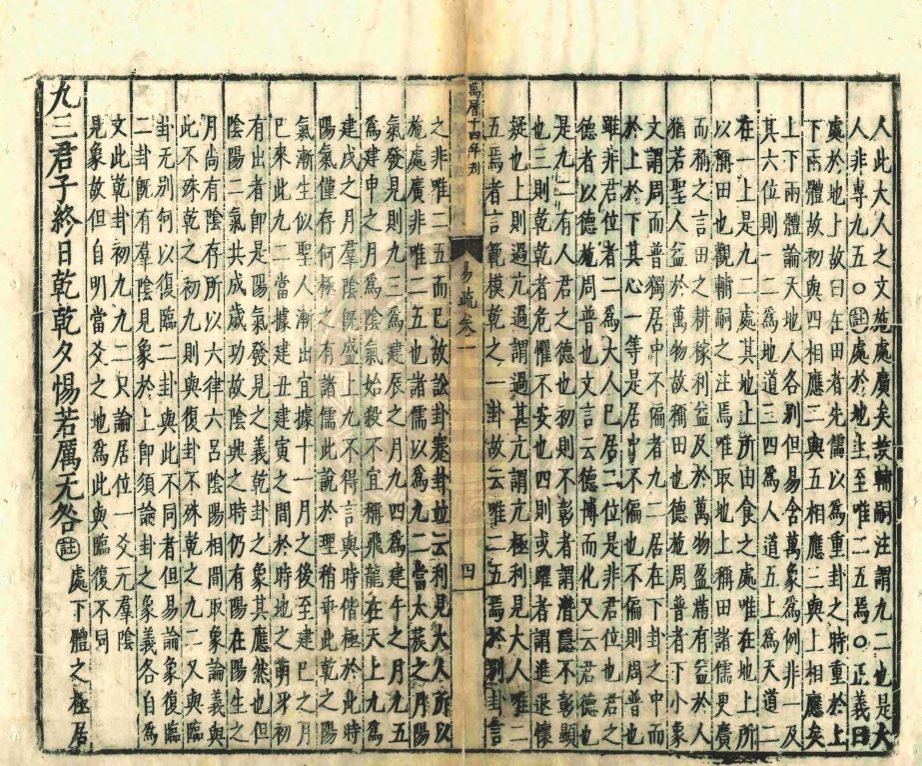 人此大人之文施處廣矣故輔嗣注謂九二也是大
人非專九五○註處於地上至唯二五焉○正義曰
處於地上故曰在田者先儒以為重卦之時重於上
下兩體故初與四相應二與五相應三與上相應矣
上下兩體論天地人各別但易含萬象為例非一及
其六位則一二為地道三四為人道五上為天道二
在一上是九二處其地上所由食之處唯在地上所
以稱田也觀輔嗣之注焉唯取地上稱田諸儒更廣
而稱之言田之耕稼利益及於萬物盈滿有益於人
猶若聖人益於萬物故稱田也德施周普者下小象
文謂周而普獨居中不偏者九二居在下卦之中而
於上於下其心一等是居中不偏也不偏則周普也
雖非君位者二為大人已居二位是非君位也君之
德者以德施周普也文言云德博而化又云君德也
是九二有人君之德也初則不彰者謂潛隱不彰顯
也三則乾乾者危懼不安也四則或躍者謂進退懷
疑也上則過亢過謂過甚亢謂亢極利見大人唯二
五焉者言範模乾之一卦故云唯二五焉於別卦言
萬曆十四年刊
易疏卷一
四
之非唯二五而已故訟卦蹇卦並云利見大人所以
施處廣非唯二五也諸儒以為九二當太蔟之月陽
氣發見則九三為建辰之月九四為建午之月九五
為建申之月為陰氣始殺不宜稱飛龍在天上九為
建戌之月羣陰旣盛上九不得言與時偕極於此時
陽氣僅存何極之有諸儒此說於理稍乖此乾之陽
氣漸生似聖人漸出宜據十一月之後至建巳之月
已來此九二當據建丑建寅之間於時地之萌牙初
有出者卽是陽氣發見之義乾卦之象其應然也但
陰陽二氣共成歲功故陰興之時仍有陽在陽生之
月尚有陰存所以六律六呂陰陽相間取象論義與
此不殊乾之初九則與復卦不殊乾之九二又與臨
卦无別何以復臨二卦與此不同者但易論象復臨
二卦旣有羣陰見象於上卽須論卦之象義各自為
文此乾卦初九九二只論居位一爻无羣陰
見象故但自明當爻之地為此與臨復不同
九三君子終日乾乾夕惕若厲无咎註處下體之極居